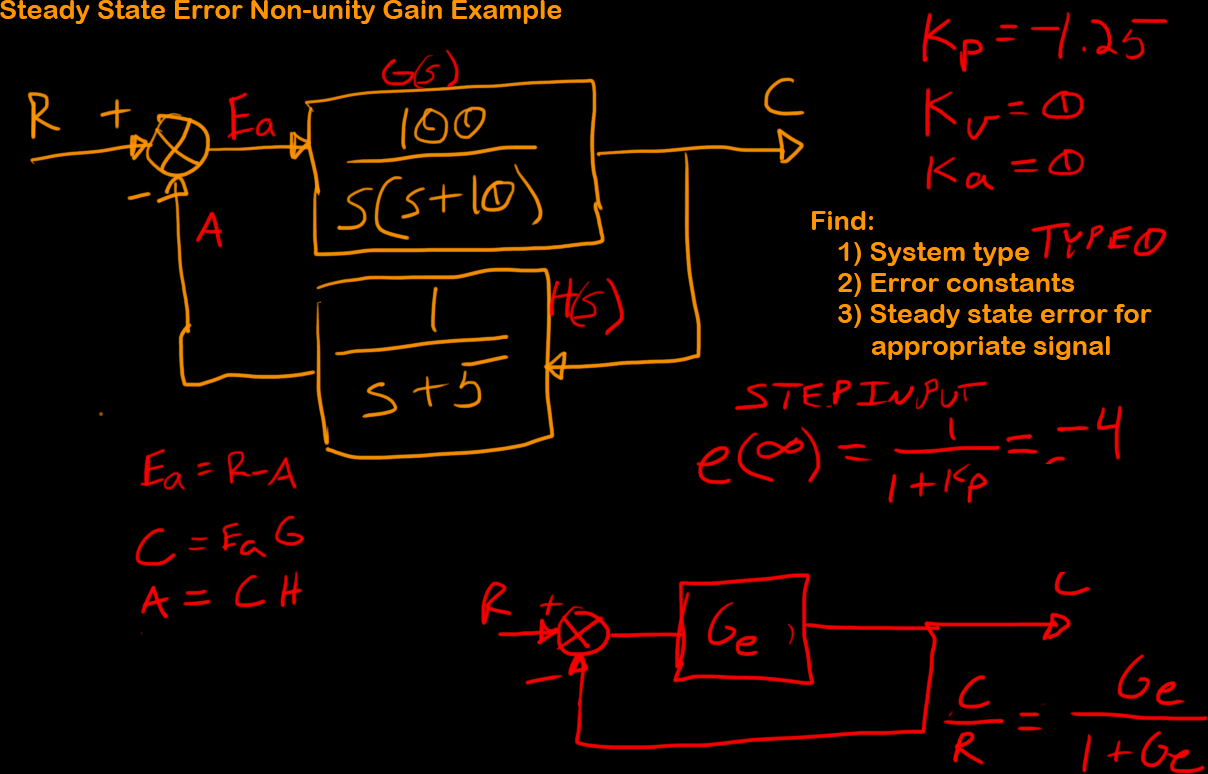 Steady State Error Non-unity Gain Example
Kp = -1.25
Kv = 0
Ka = 0
G(s)
R + Ea 100 / s(s+10) C
-
A
H(s)
1 / s+5
Find:
1) System type TYPE 0
2) Error constants
3) Steady state error for
appropriate signal
STEP INPUT
e(∞) = 1 / 1+Kp = -4
Ea = R-A
C = Ea G
A = C H
R + Ge C
-
C / R = Ge / 1+Ge